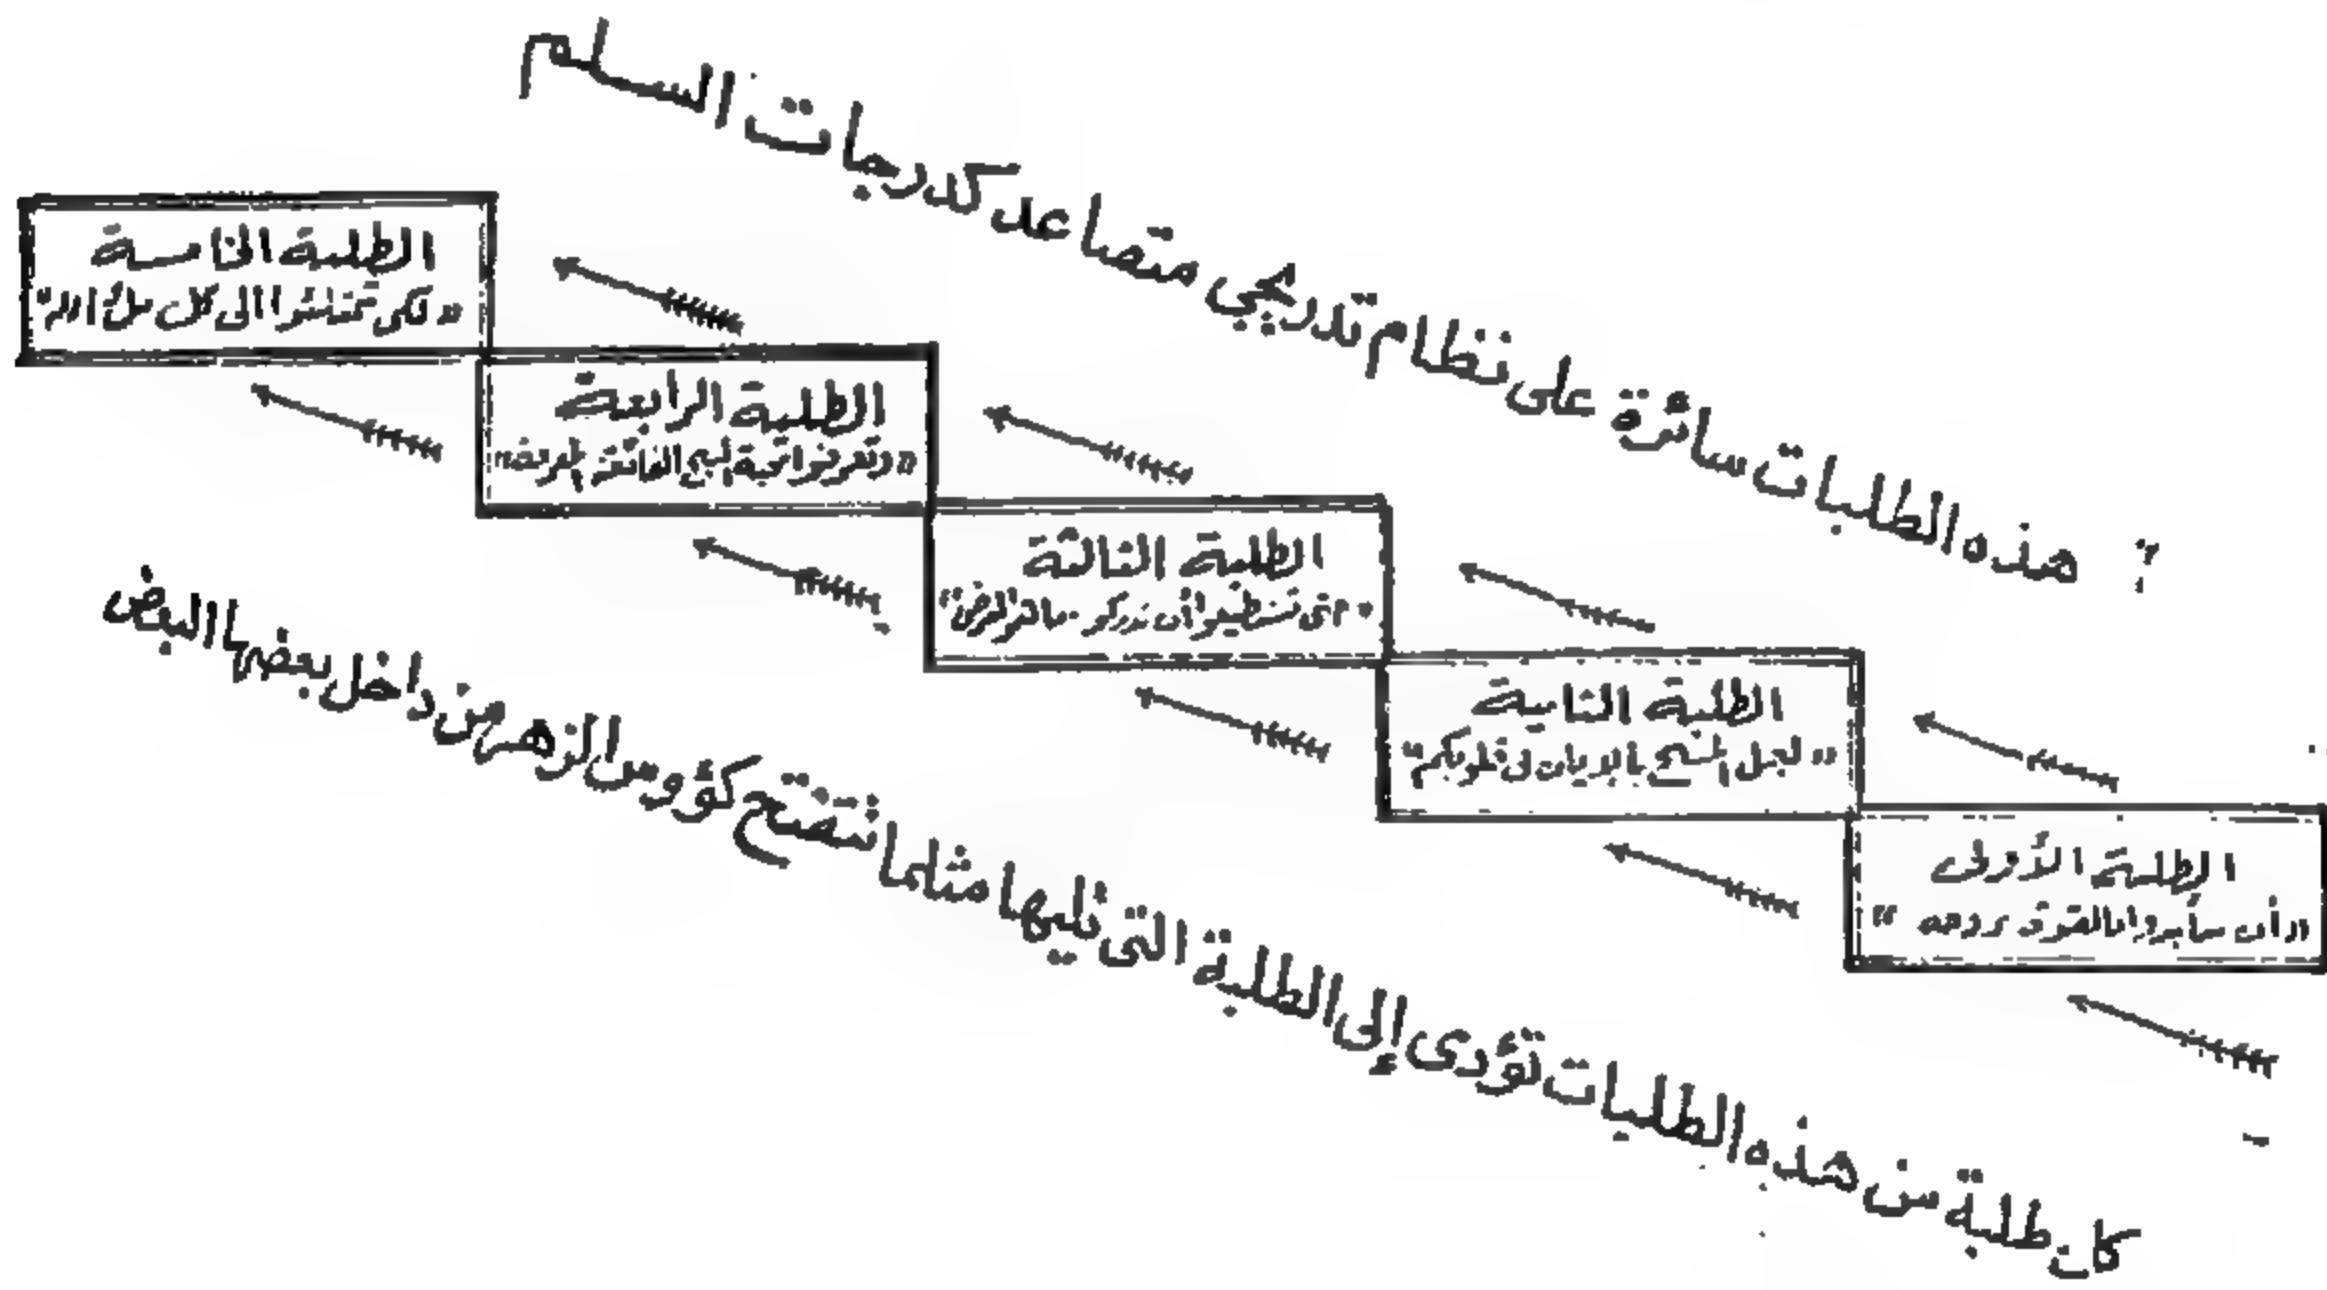 هذه الطلبات سائرة على نظام تدريجي متصاعد كدرجات السلم
الطلبة الخامسة
«لكى تمتلئوا الى كل ملء الله»
الطلبة الرابعة
«وتعرفوا محبة المسيح الفائقة المعرفة»
الطلبة الثالثة
«حتى تستطيعوا أن تدركوا ما هو العرض»
الطلبة الثانية
«ليحل المسيح بالايمان فى قلوبكم»
الطلبة الأولى
«أن تتأيدوا بالقوة بروحه»
كل طلبة من هذه الطلبات تؤدى إلى الطلبة التى تليها مثلما تتفتح كؤوس الزهر من داخل بعضها البعض